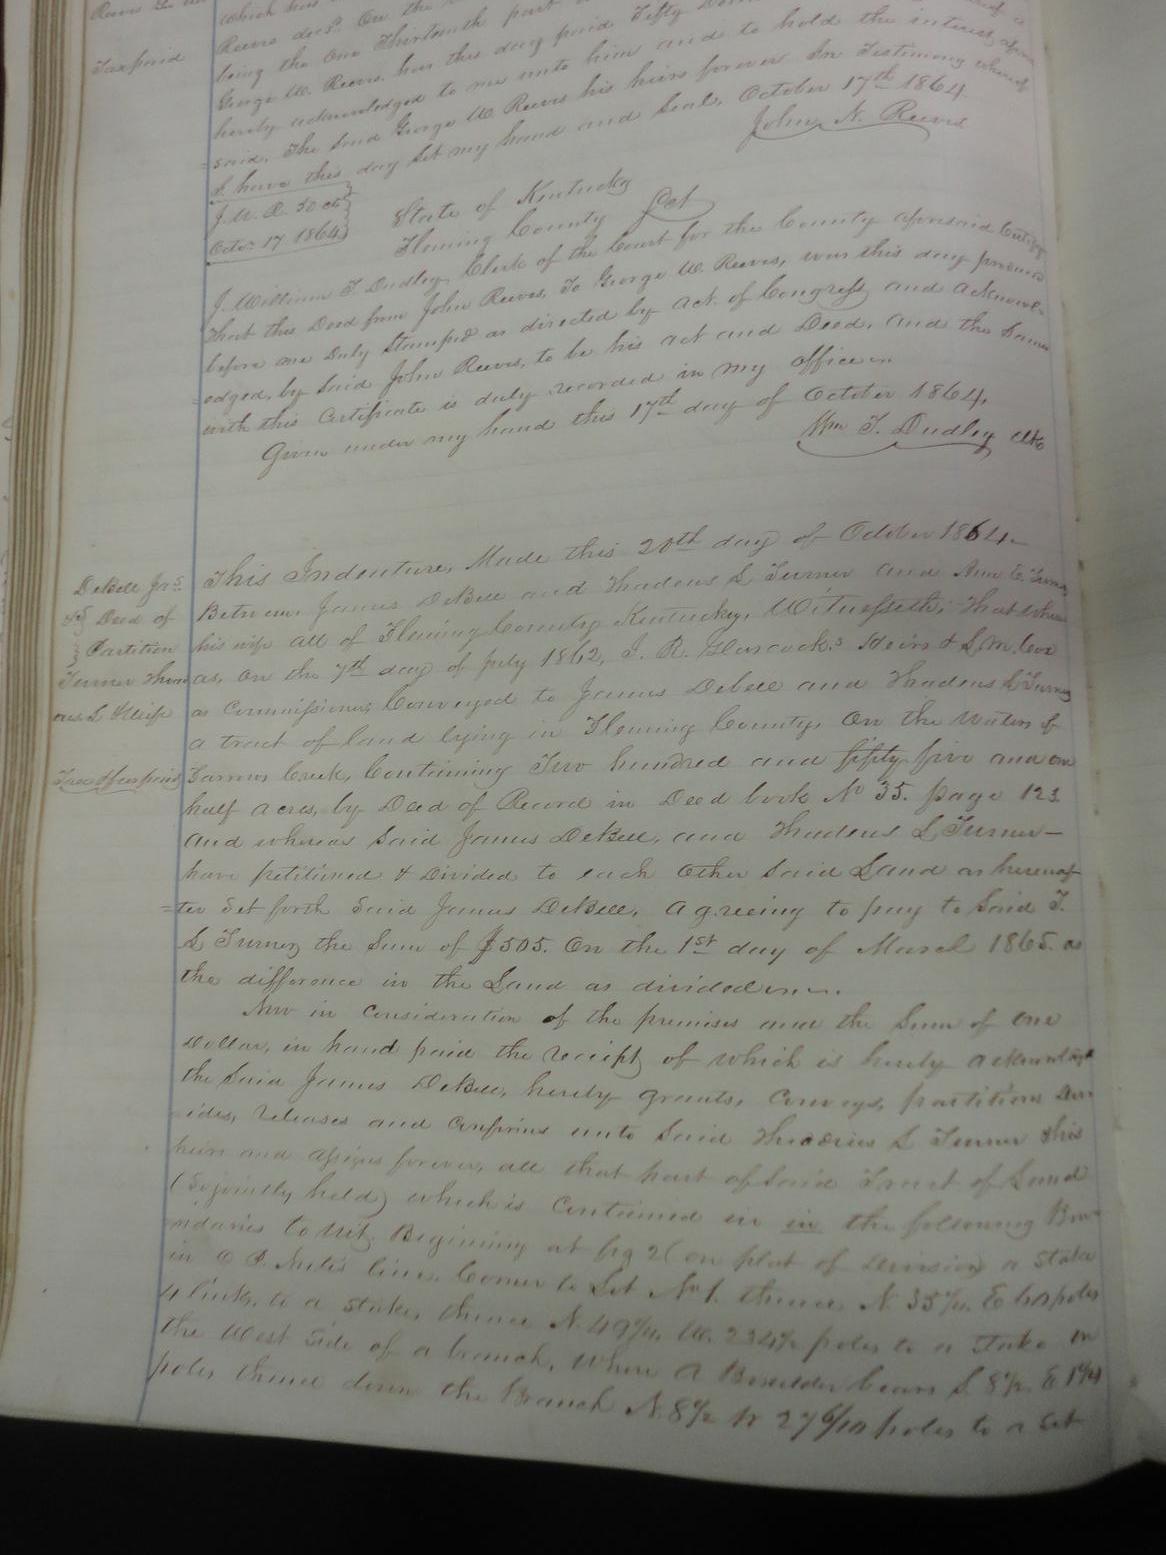 which has
Reeves decd. On the
Tax paid
being the One Thirteenth part
George W. Reeves has this day paid Fifty
hereby acknowledged to me unto him and to hold the interest
said, The Said George W. Reeves his heirs forever In Testimony whereof
I have this day Set my hand and Seal, October 17th 1864
John N. Reeves
J. U. R. 50 cts
Octo. 17 1864
State of Kentucky
Fleming County Sct
I William T. Dudley Clerk of the Court for the County aforesaid Certify
That this Deed from John Reeves, To George W. Reeves, was this day produced
before me Duly Stamped as directed by act of Congress and acknowl-
=edged, by Said John Reeves, to be his act and Deed, and the Same
with this Certificate is duly recorded in my office
Given under my hand this 17th day of October 1864.
Wm T. Dudley Clk
DeBell Jas
Deed of
Partition
Turner
L &
This Indenture, Made this 20th day of October 1864
Between James DeBell and Thadeus L Turner and Ann E. Turner
his wife all of Fleming County Kentucky, Witnesseth, That where
as, On the 7th day of July 1862, Heirs &
as Commissioner Conveyed to James Debell and Thadeus L Turner
a tract of land lying in Fleming County, On the Waters of
Farrows Creek, Containing Two hundred and fifty five and one
half acres, by Deed of Record in Deed book No 35. page 123
and whereas Said James DeBell, and Thadeus L Turner—
have petitioned & Divided to each Other Said Land as hereaf
=ter Set forth Said James DeBell, agreeing to pay to Said T.
L Turner the Sum of $505. On the 1st day of March 1865. as
the difference in the Land as divided
Now in Consideration of the premises and the Sum of One
Dollar, in hand paid the receipt of which is hereby acknowledged
the Said James DeBell, hereby grants, Conveys, partitions
ides, releases and Confirms unto Said Thadeus L Turner his
heirs and assigns forever, all that part of Said Tract of Land
(So jointly held) which is Contained in in the following Bou-
ndaries to wit, Beginning at fig 2 (on plat of Division) a Stake
in line, Corner to Lot No 1. thence N. 35 E poles
4 links, to a Stake, thence N. 49 W. poles to a Stake on
the West Side of a branch, Where a bears S. 8½ E
poles thence down the Branch N. 8½ W 27 6/10 poles to a